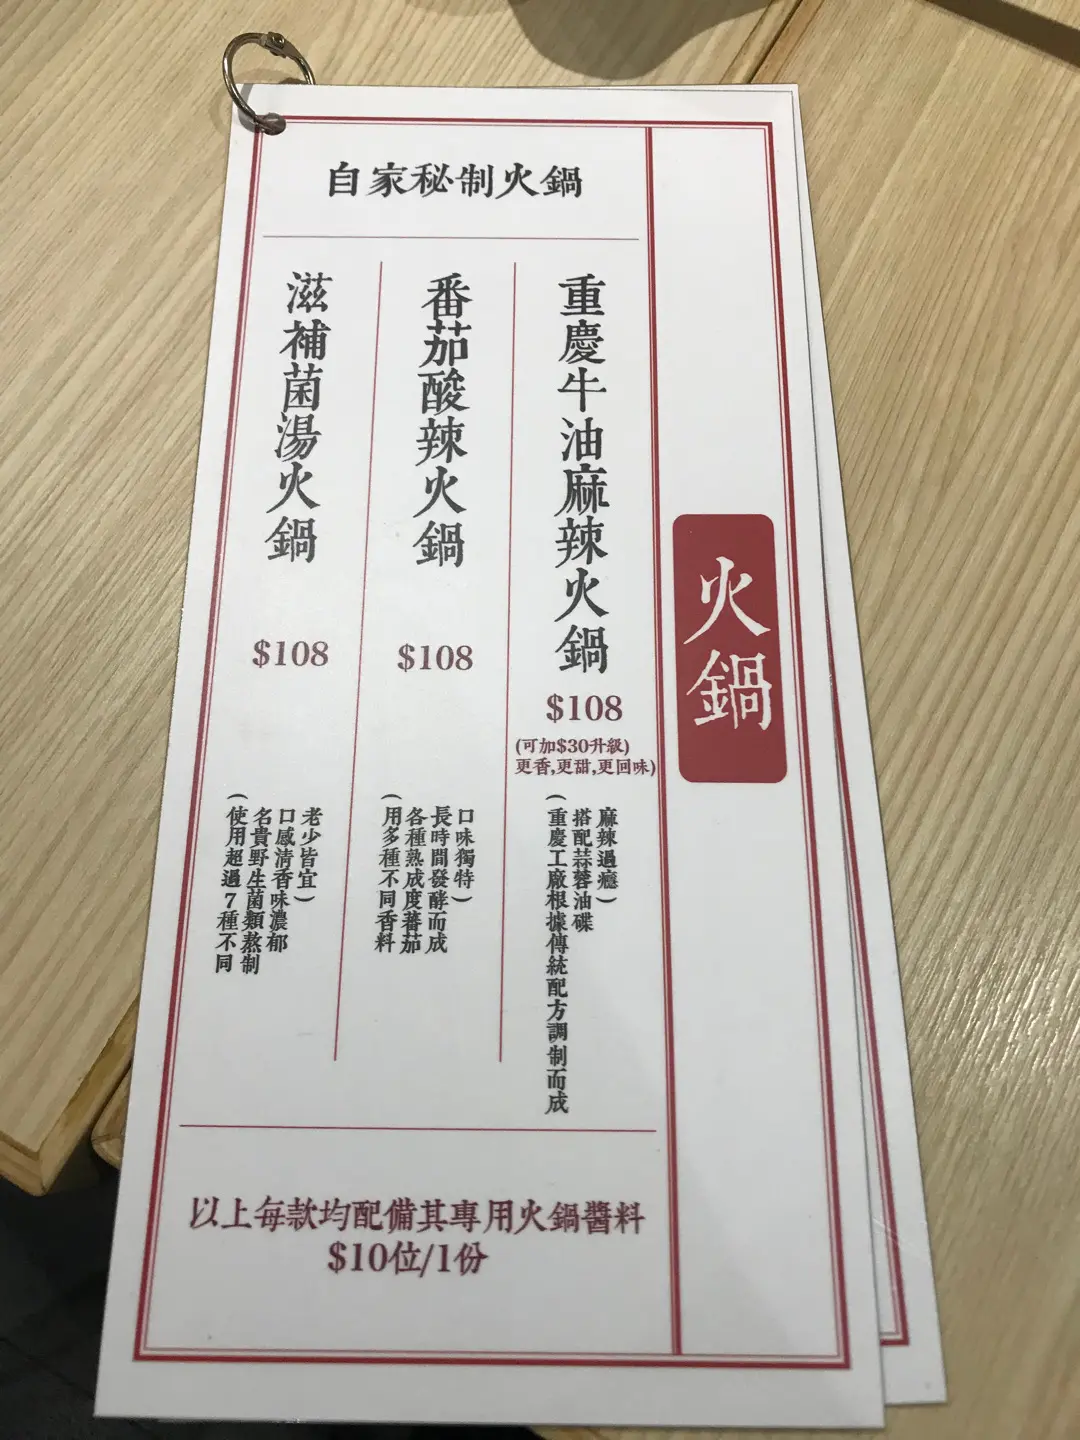 火鍋
自家秘制火鍋
重慶牛油麻辣火鍋
$108
(可加$30升級)
更香,更甜,更回味)
(重慶工廠根據傳統配方調制而成
搭配蒜蓉油碟
麻辣過癮)
番茄酸辣火鍋
$108
(用多種不同香料
各種熟成度蕃茄
長時間發酵而成
口味獨特)
滋補菌湯火鍋
$108
(使用超過7種不同
名貴野生菌類熬制
口感清香味濃郁
老少皆宜)
以上每款均配備其專用火鍋醬料
$10位/1份